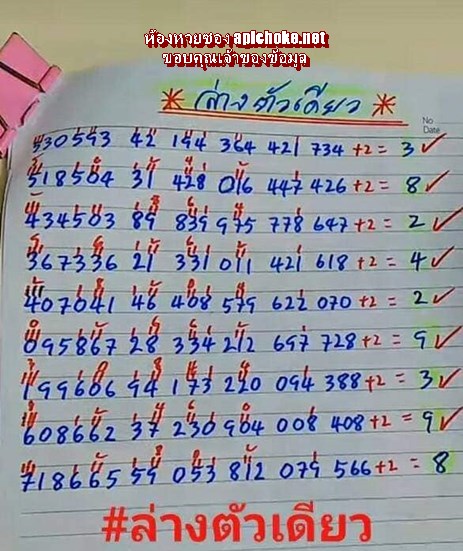 ห้องหวยซอง apichoke.net
ขอบคุณเจ้าของข้อมูล
* ล่างตัวเดียว *
No
Date
530593 42 194 364 421 734 +2 = 3 ✓
518504 31 428 016 447 426 +2 = 8 ✓
434503 89 839 975 778 647 +2 = 2 ✓
367336 21 331 011 421 618 +2 = 4 ✓
407041 46 408 579 622 070 +2 = 2 ✓
095867 28 334 212 697 728 +2 = 9 ✓
199606 94 173 220 094 388 +2 = 3 ✓
608662 37 230 904 008 408 +2 = 9 ✓
718665 59 053 812 079 566 +2 = 8
#ล่างตัวเดียว